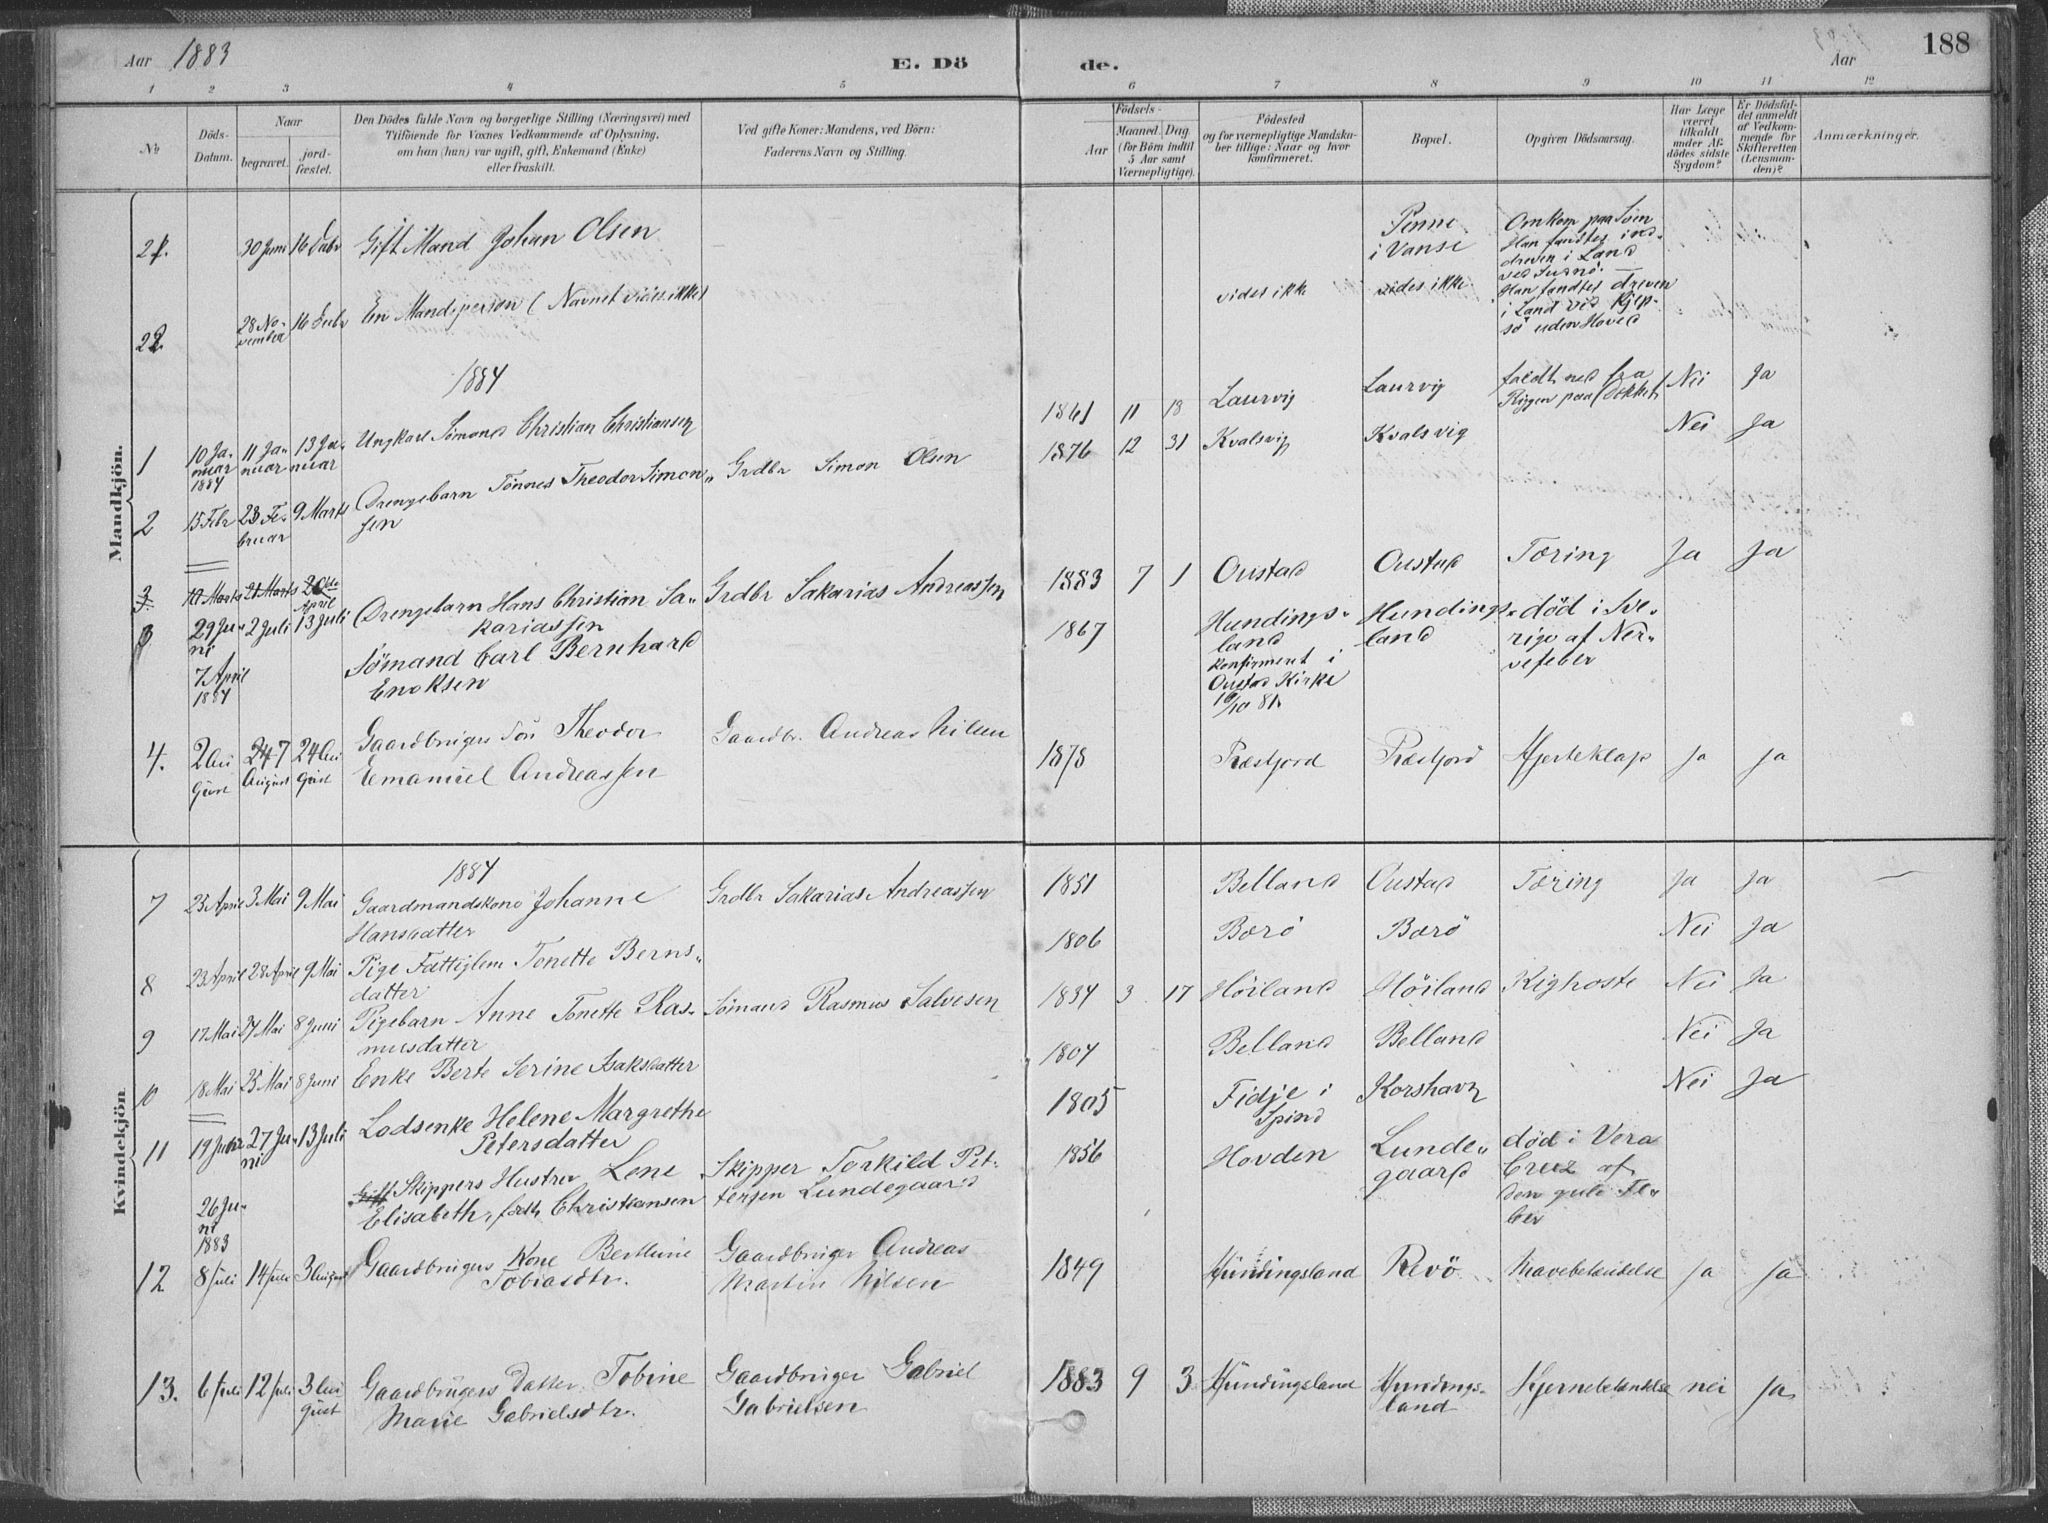 Aar 1883
E. Dö
de.
Aar
188
1 2 3 4 5 6 7 8 9 10 11 12
№
Döds-
Datum.
Naar
begravet.
jord-
fæstet.
Den Dödes fulde Navn og borgerlige Stilling (Næringsvei) med
Tilföiende for Voxnes Vedkommende af Oplysning,
om han (hun) var ugift, gift, Enkemand (Enke)
eller fraskilt.
Ved gifte Koner: Mandens, ved Börn:
Faderens Navn og Stilling.
Födsels-
Aar
Maaned. Dag
(for Börn indtil
5 Aar samt
Værnepligtige).
Födested
og for værnepligtige Mandsku-
ber tillige: Naar og hvor
konfirmeret.
Bopæl.
Opgiven Dödsaarsag.
Har Læge
været
tilkaldt
under Af-
dödes sidste
Sygdom?
Er Dödsfal-
det anmeldt
af Vedkom-
mende for
Skifteretten
(Lensman-
den)?
Anmærkninger.
Mandkjön.
21. 30 Juni 16 Decbr Gift Mand Johan Olsen
Penne
i Vanse
Omkom paa Söen
Han fandtes ind-
dreven i Land
22. 28 No-
vember 16 Decbr En Mandsperson (Navnet vides ikke)
vides ikke vides ikke Han fandtes dreven
i Land ved
uden Hoved
1884
1 10 Ja-
nuar
1884 11 Ja-
nuar 13 Ja-
nuar Ungkarl Simond Christian Christiansen
1861 11 18 Laurvig Laurvig faldt ned fra
Riggen paa Dækket Nei Ja
2 15 Febr 23 Fe-
bruar 9 Marts Drengebarn Tönnes Theodor Simon-
sen Grdbr Simon Olsen
1876 12 31 Kvalsvig Kvalsvig Nei Ja
3 21 Marts
April
Drengebarn Hans Christian Sa-
kariassen Grdbr Sakarias Andreassen
1883 7 1 Oustad Oustad Tæring Ja Ja
29 Ju-
ni 2 Juli 13 Juli
7 April
1884
Sömand Carl Bernhard
Enoksen
1867 Hundings-
land
konfirmert i
Oustad Kirke
Hundings-
land
död i Sve-
rige af Ner-
vefeber
4. 2 Au
gust 24 7
August 24 Au
gust Gaardbrugers Sön Theodor
Emanuel Andreassen Gaardbr. Andreas Nilsen
1878 Ræstfjord Ræstfjord Hjerteklap ja ja
Kvindekjön
1884
7 25 April 3 Mai 9 Mai Gaardmandskone Johanne
Hansdatter Grdbr Sakarias Andreassen
1851 Belland Oustad Tæring Ja Ja
8 23 April 28 April 9 Mai Pige Fattiglem Tonette Berns-
datter
1806 Borö Borö Nei Ja
9 17 Mai 27 Mai 8 Juni Pigebarn Anne Tonette Ras-
musdatter Sömand Rasmus Salvesen
1834 3 17 Höiland Höiland Kighoste Nei Ja
10 18 Mai 25 Mai 8 Juni Enke Berte Serine Isaksdatter
1804 Belland Belland Nei Ja
11 19 Juni 27 Ju-
ni 13 Juli Lodsenke Helene Margrethe
Petersdatter
1805 Fidje i
Spind Korshavn Nei Ja
26 Ju-
ni
1883
Skippers Hustru Lene
Elisabeth, födt Christiansen Skipper Torkild Pet-
tersen Lundegaard
1856 Hovden Lunde-
gaard död i Vera
Cruz af
den gule Fe-
ber
12 8 Juli 14 Juli 3 August Gaardbrugers Kone Berthine
Tobiasdtr. Gaardbruger Andreas
Martin Nilsen
1849 Hundingsland Revö Mavebetændelse ja ja
13. 6 Juli 12 Juli 3 Au
gust Gaardbrugers Datter Tobine
Marie Gabrielsdtr. Gaardbruger Gabriel
Gabrielsen
1883 9 3 Hundingsland Hundings-
land Hjernebetændelse nei ja